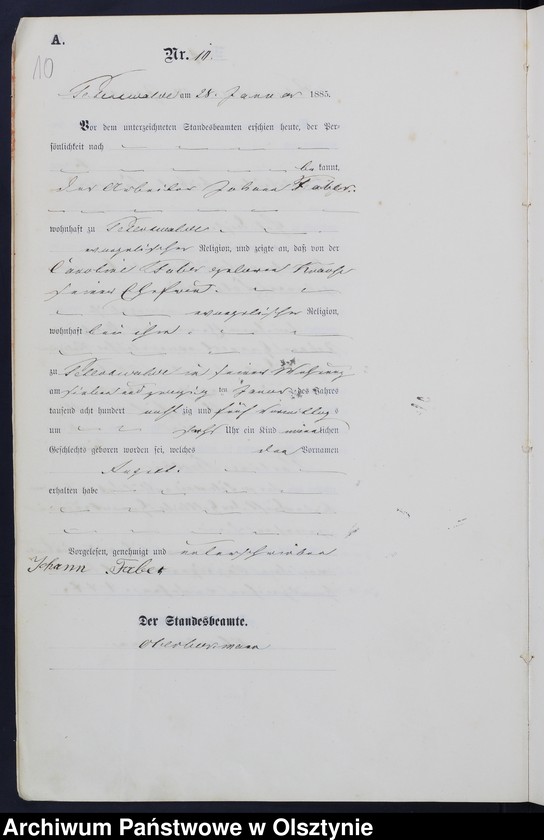 A.
10
Nr. 10.
am 28. Januar 1885.
Vor dem unterzeichneten Standesbeamten erschien heute, der Per-
sönlichkeit nach
be kannt,
der Arbeiter Johann Faber.
wohnhaft zu
evangelischer Religion, und zeigte an, daß von der
Caroline Faber geborene Krause
seiner Ehefrau.
evangelischer Religion,
wohnhaft bei ihm
zu in seiner Wohnung
am sieben und zwanzig ten Januar des Jahres
tausend acht hundert acht zig und fünf
um sechs Uhr ein Kind männlichen
Geschlechts geboren worden sei, welches den Vornamen
August.
erhalten habe
Vorgelesen, genehmigt und unterschrieben
Johann Faber
Der Standesbeamte.
Archiwum Państwowe w Olsztynie